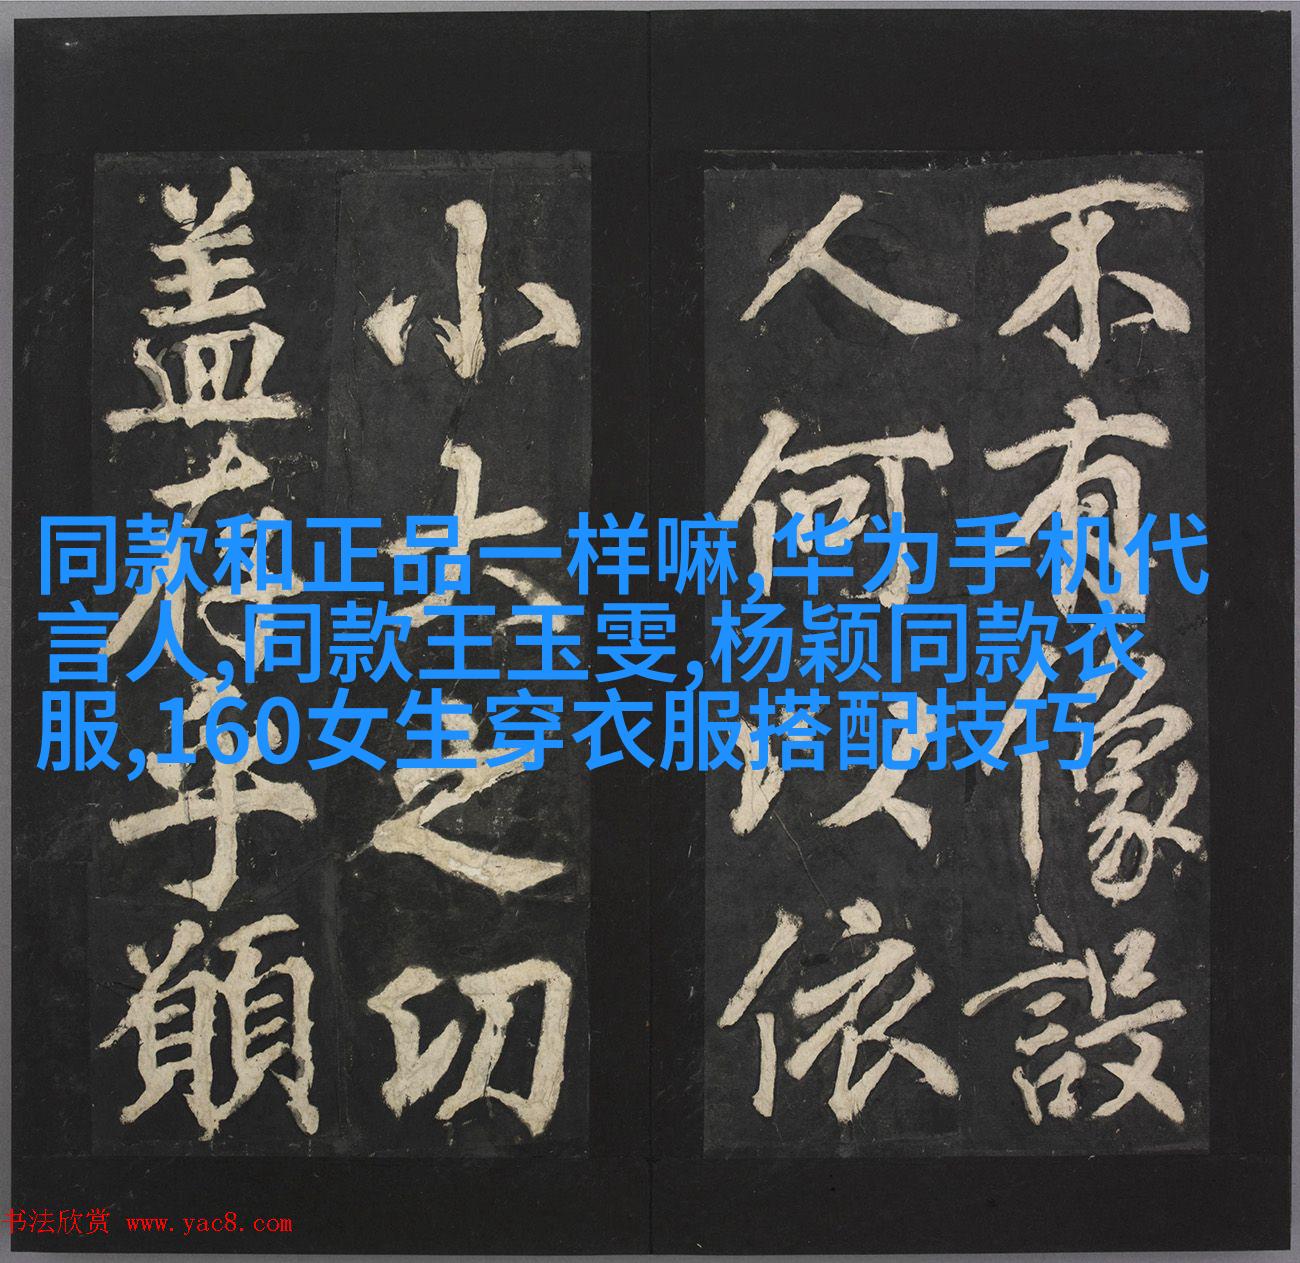 不有像設
人何以依
小大之切
盖存乎願
同款和正品一样嘛,华为手机代
言人,同款王玉雯,杨颖同款衣
服,160女生穿衣服搭配技巧
书法欣赏 www.yac8.com